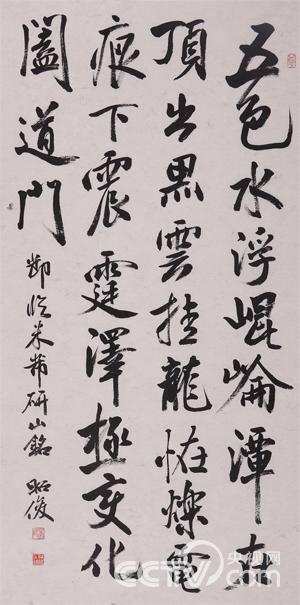 五色水浮崐崘潭在
頂出黑雲挂龍怪爍電
痕下震霆澤極變化
闔道門
節臨米芾研山銘 昭俊
央视网
CCTV.com